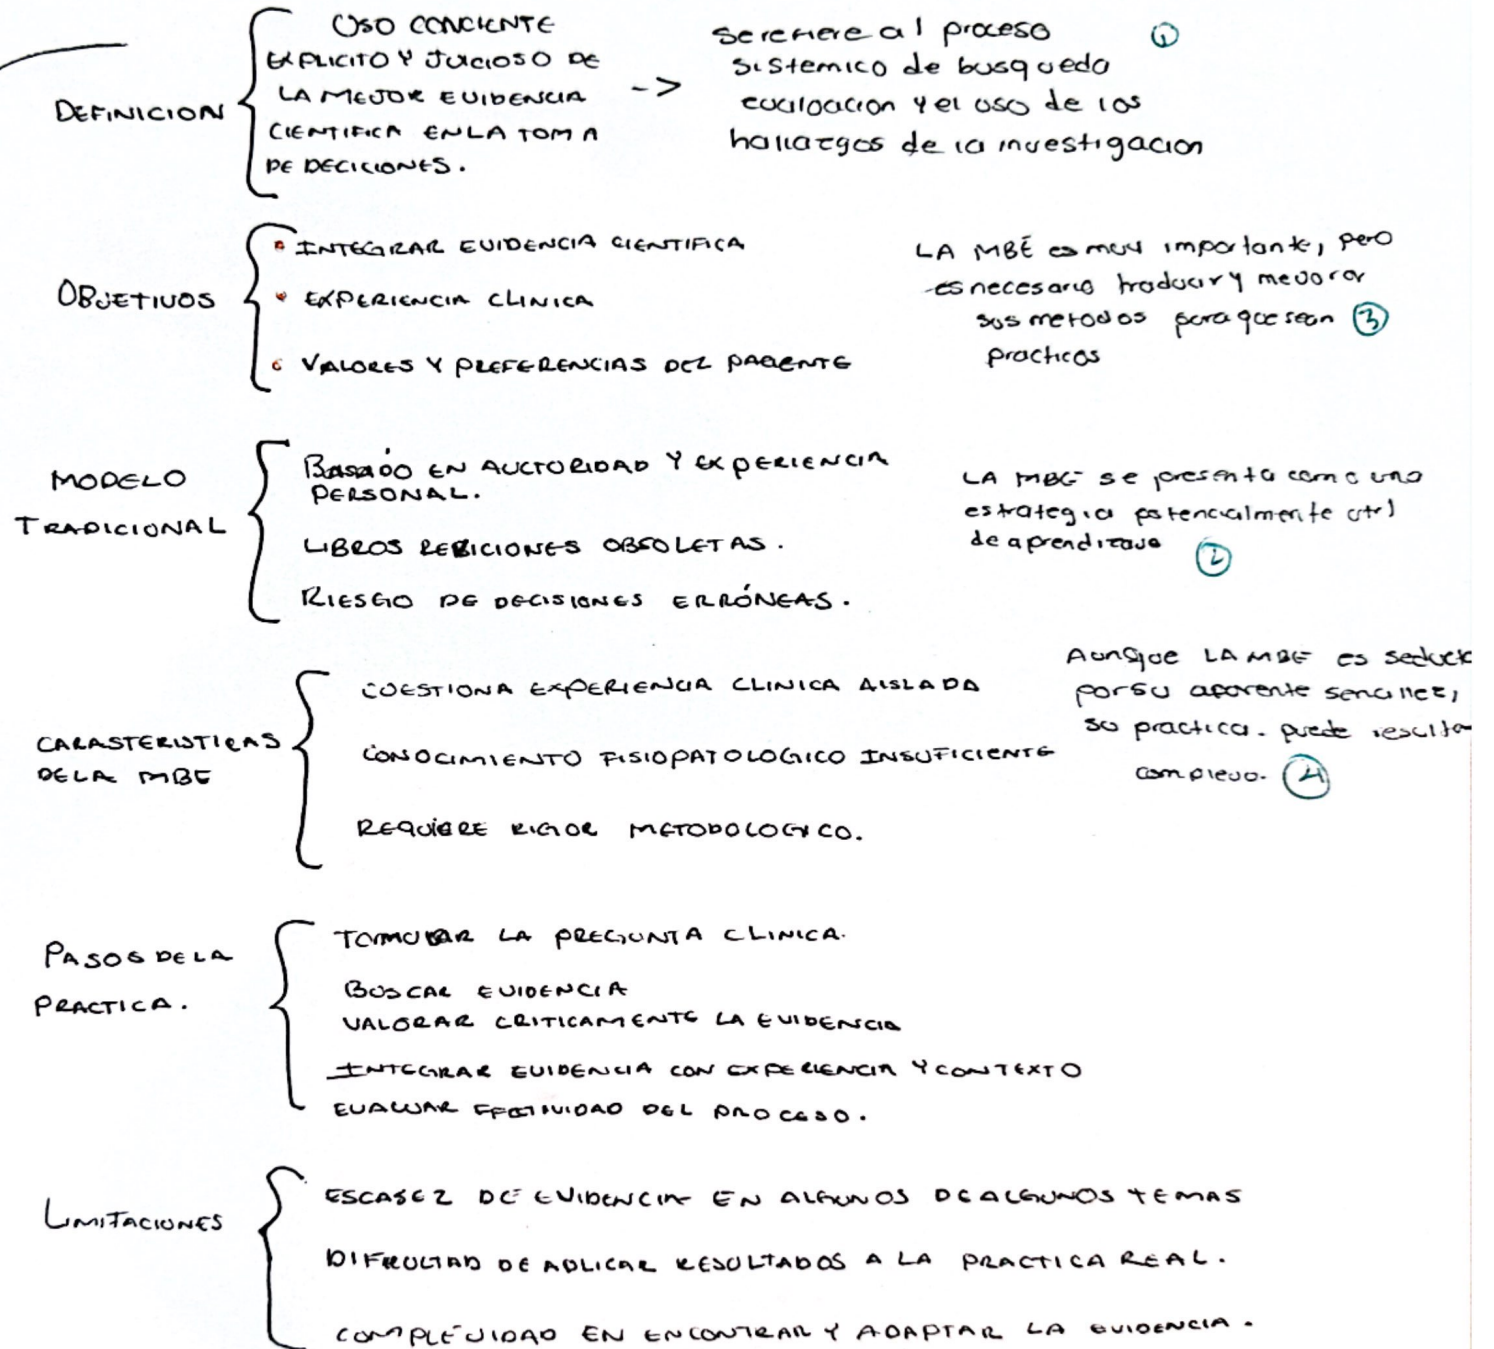 DEFINICION
USO CONCIENTE
EXPLICITO Y JUICIOSO DE
LA MEJOR EVIDENCIA
CIENTIFICA EN LA TOMA
DE DECICIONES.
->
Se refiere al proceso ①
sistemico de busqueda
evaluacion y el uso de los
hallazgos de la investigacion
OBJETIVOS
• INTEGRAR EVIDENCIA CIENTIFICA
• EXPERIENCIA CLINICA
• VALORES Y PREFERENCIAS DEL PACIENTE
LA MBE es muy importante, pero
es necesario traducir y mejorar
sus metodos para que sean ③
practicos
MODELO
TRADICIONAL
Basado EN AUCTORIDAD Y EXPERIENCIA
PERSONAL.
LIBROS REBICIONES OBSOLETAS.
RIESGO DE DECISIONES ERRÓNEAS.
LA MBE se presenta como una
estrategia potencialmente util
de aprendizaje
②
CARASTERISTICAS
DE LA MBE
CUESTIONA EXPERIENCIA CLINICA AISLADA
CONOCIMIENTO FISIOPATOLOGICO INSUFICIENTE
REQUIERE RIGOR METODOLOGICO.
Aunque LA MBE es seduc
por su aparente sencillez,
su practica. puede resulta
complejo. ④
PASOS DE LA
PRACTICA.
LA PREGUNTA CLINICA.
BUSCAR EVIDENCIA
VALORAR CRITICAMENTE LA EVIDENCIA
INTEGRAR EVIDENCIA CON EXPERIENCIA Y CONTEXTO
EVALUAR EFECTIVIDAD DEL PROCESO.
LIMITACIONES
ESCASEZ DE EVIDENCIA EN ALGUNOS DE ALGUNOS TEMAS
DIFICULTAD DE APLICAR RESULTADOS A LA PRACTICA REAL.
COMPLEJIDAD EN ENCONTRAR Y ADAPTAR LA EVIDENCIA.